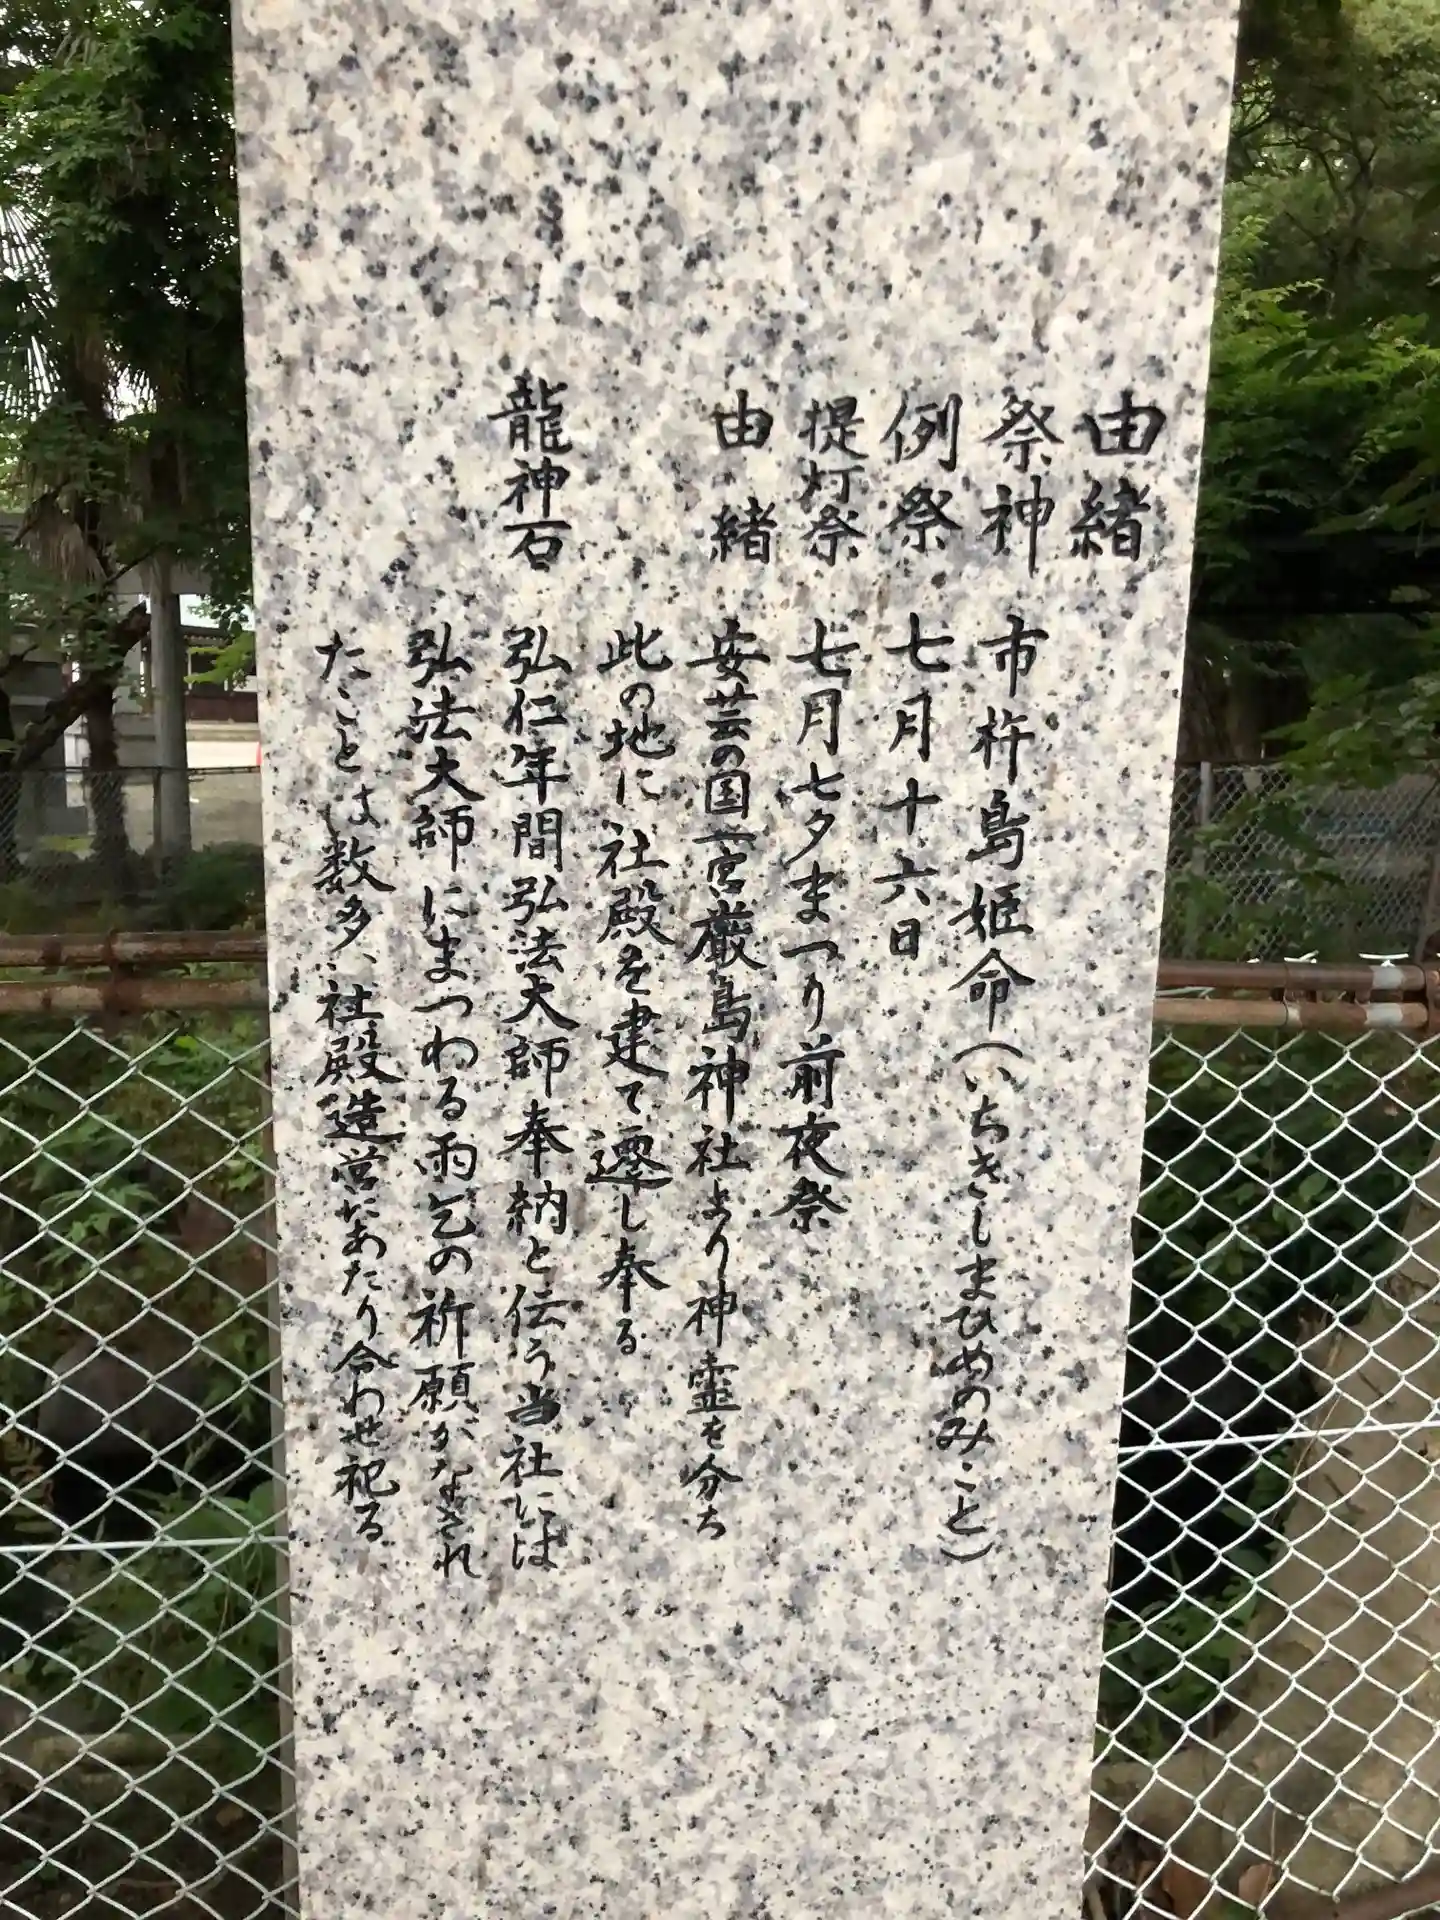 由緒
祭神 市杵島姫命（いちきしまひめのみこと）
例祭 七月十六日
提灯祭 七月七夕まつり前夜祭
由緒 安芸の国一宮厳島神社より神霊を分ち
此の地に社殿を建て遷し奉る
龍神石 弘仁年間弘法大師奉納と伝う当社には
弘法大師にまつわる雨乞の祈願がなされ
たことは数多、社殿造営にあたり合わせ祀る